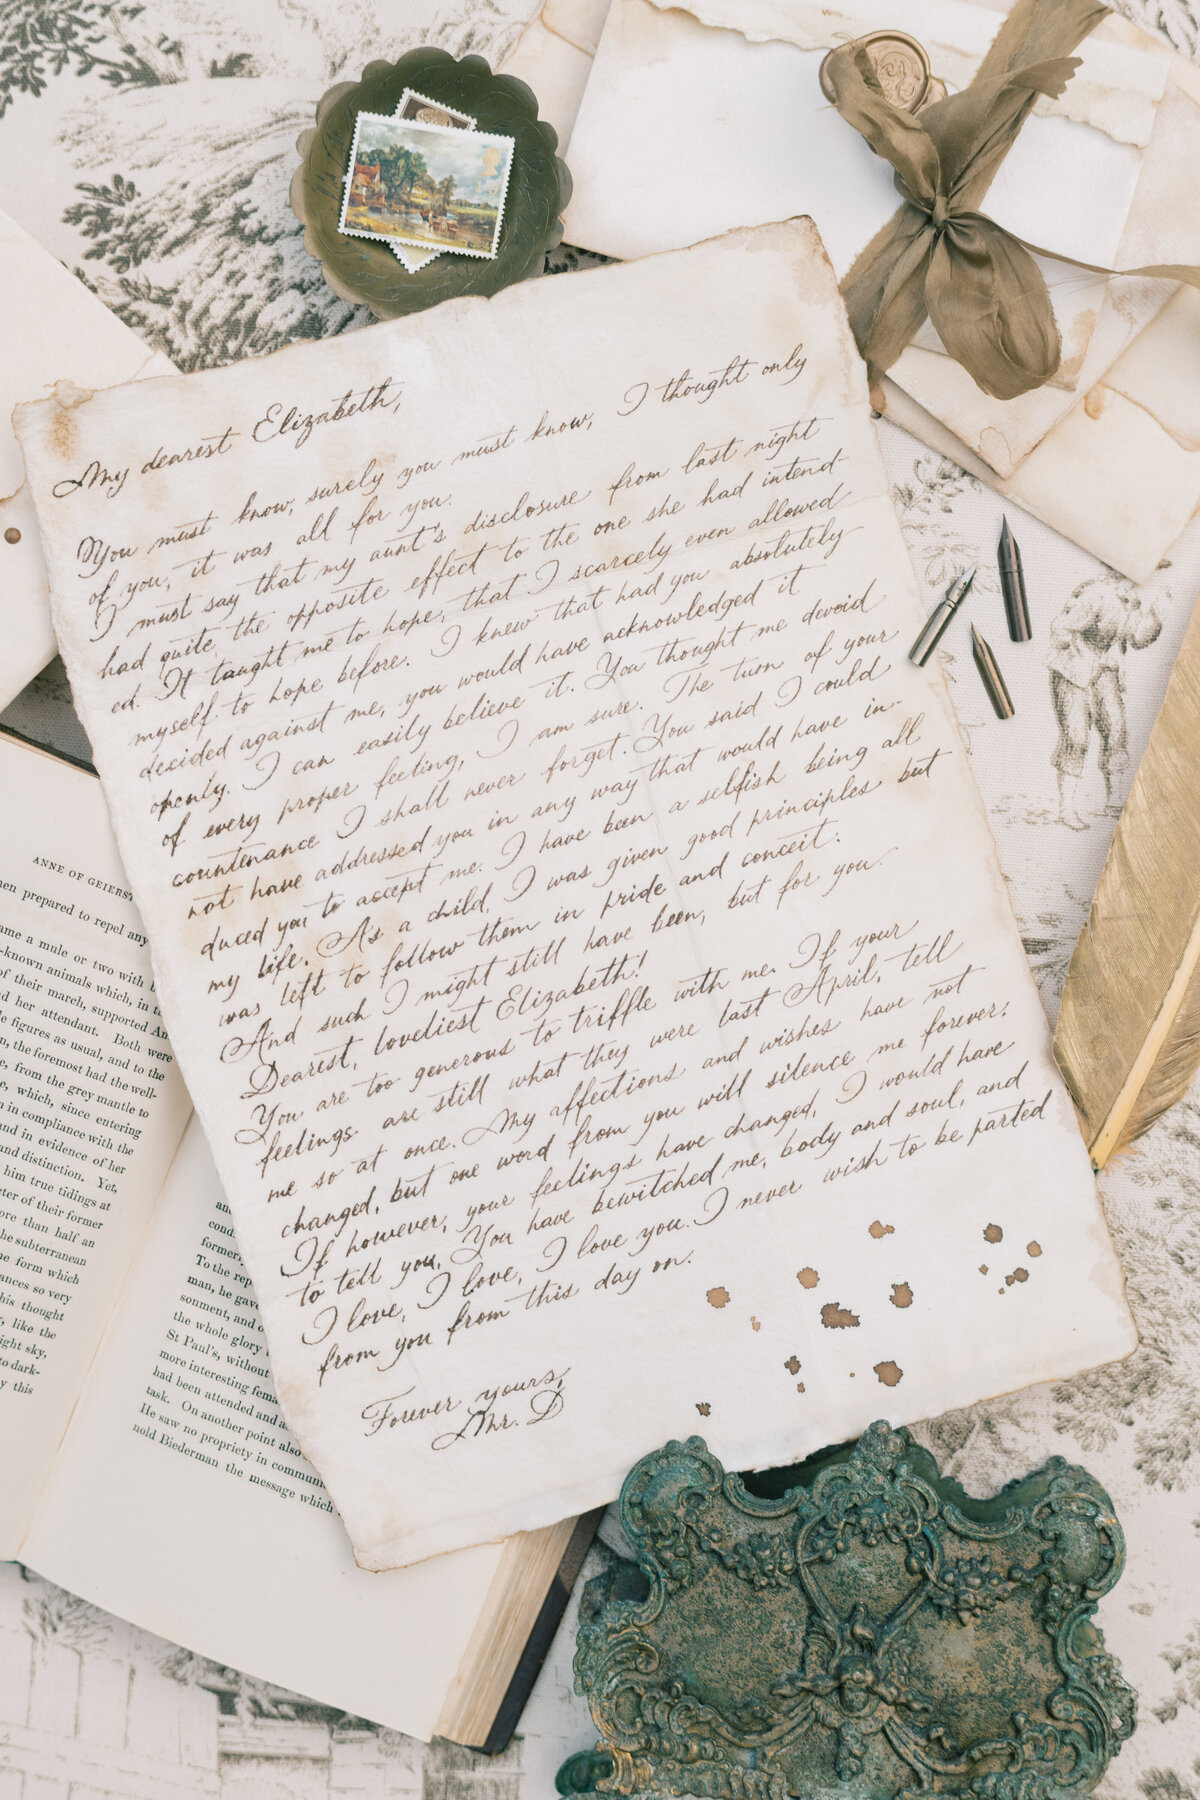 My dearest Elizabeth,
You must know, surely you must know, I thought only
of you, it was all for you.
I must say that my aunt's disclosure from last night
had quite the opposite effect to the one she had intend-
ed. It taught me to hope, that I scarcely even allowed
myself to hope before. I knew that had you absolutely
decided against me, you would have acknowledged it
openly. I can easily believe it. You thought me devoid
of every proper feeling, I am sure. The turn of your
countenance I shall never forget. You said I could
not have addressed you in any way that would have in-
duced you to accept me. I have been a selfish being all
my life. As a child, I was given good principles but
was left to follow them in pride and conceit.
And such I might still have been, but for you.
Dearest, loveliest Elizabeth!
You are too generous to triffle with me. If your
feelings are still what they were last April, tell
me so at once. My affections and wishes have not
changed, but one word from you will silence me forever.
If however, your feelings have changed, I would have
to tell you, You have bewitched me, body and soul, and
I love, I love, I love you. I never wish to be parted
from you from this day on.
Forever yours,
Mr. D
ANNE OF GEIERST
en prepared to repel any
ame a mule or two with
-known animals which, in th
of their march, supported An
d her attendant. Both were
le figures as usual, and to the
n, the foremost had the well-
e, from the grey mantle to
e, which, since entering
n in compliance with the
and in evidence of her
and distinction. Yet,
him true tidings at
ter of their former
ore than half an
he subterranean
e form which
ances so very
his thought
, like the
ight sky,
to dark-
y this
an
cond
formerl
To the rep
man, he gave
sonment, and o
the whole glory
St Paul's, without
more interesting fema
had been attended and a
task. On another point also
He saw no propriety in commun
nold Biederman the message which